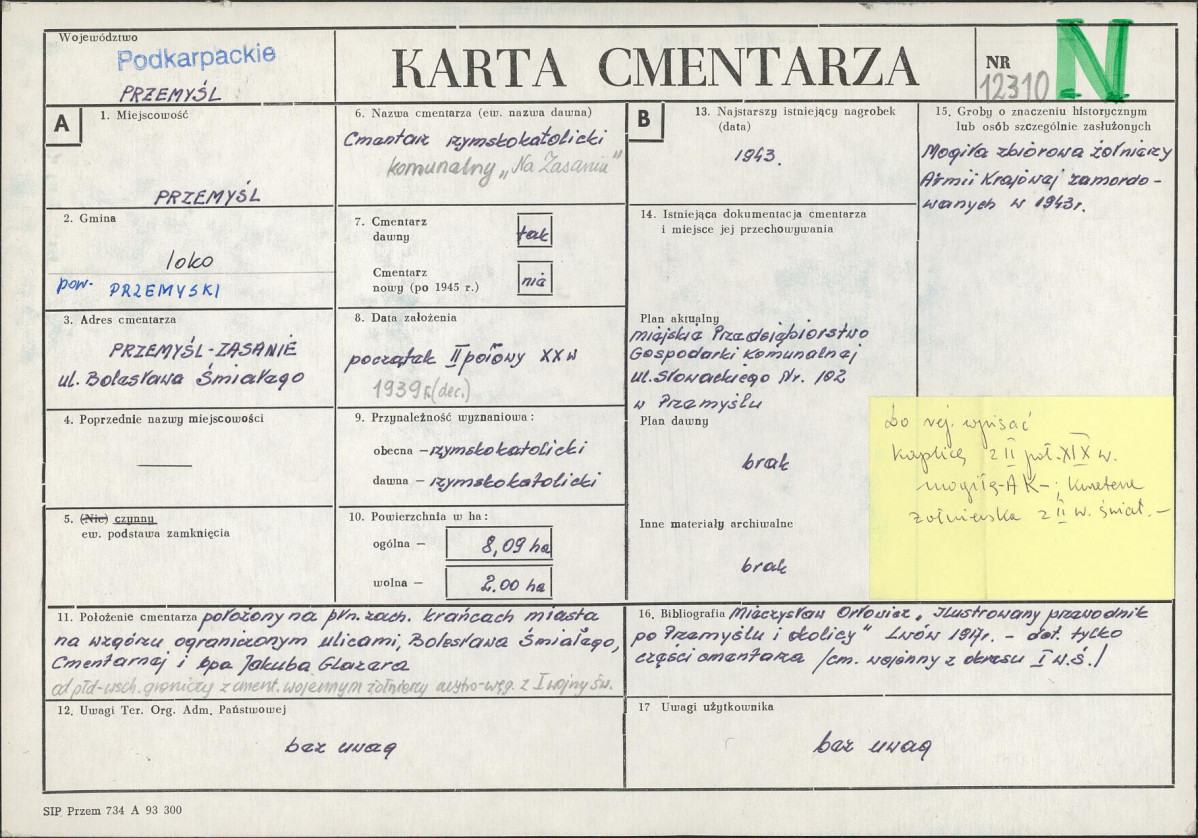 Województwo
Podkarpackie
PRZEMYŚL
KARTA CMENTARZA
NR
12310
N
A
1. Miejscowość
PRZEMYŚL
2. Gmina
loko
pow. PRZEMYSKI
3. Adres cmentarza
PRZEMYŚL-ZASANIE
ul. Bolesława Śmiałego
4. Poprzednie nazwy miejscowości
—
5. (Nie) czynny
ew. podstawa zamknięcia
6. Nazwa cmentarza (ew. nazwa dawna)
Cmentarz rzymskokatolicki
komunalny „Na Zasaniu"
7. Cmentarz
dawny
tak
Cmentarz
nowy (po 1945 r.)
nie
8. Data założenia
początek II połowy XX w
1939 r. (dec.)
9. Przynależność wyznaniowa:
obecna – rzymskokatolicki
dawna – rzymskokatolicki
10. Powierzchnia w ha:
ogólna – 8,09 ha
wolna – 2.00 ha
B
13. Najstarszy istniejący nagrobek
(data)
1943.
14. Istniejąca dokumentacja cmentarza
i miejsce jej przechowywania
Plan aktualny
Miejskie Przedsiębiorstwo
Gospodarki Komunalnej
ul. Słowackiego Nr. 102
w Przemyślu
Plan dawny
brak
Inne materiały archiwalne
brak
15. Groby o znaczeniu historycznym
lub osób szczególnie zasłużonych
Mogiła zbiorowa żołnierzy
Armii Krajowej zamordo-
wanych w 1943r.
Do rej. wpisać
kaplicę z II poł. XIX w.
mogiłę AK – i kwaterę
żołnierska z II w. świat. –
11. Położenie cmentarza położony na płn. zach. krańcach miasta
na wzgórzu ograniczonym ulicami, Bolesława Śmiałego,
Cmentarnej i bpa Jakuba Glazera
od płd-wsch. graniczy z cment. wojennym żołnierzy austro-węg. z I wojny św.
12. Uwagi Ter. Org. Adm. Państwowej
bez uwag
16. Bibliografia Mieczysław Orłowicz, „Ilustrowany przewodnik
po Przemyślu i okolicy" Lwów 1917r. – dot. tylko
części cmentarza /cm. wojenny z okresu I w.ś./
17 Uwagi użytkownika
bez uwag
SIP Przem 734 A 93 300